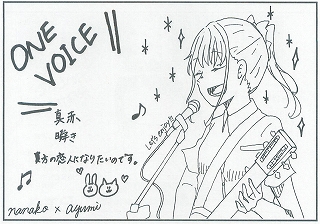 ONE
VOICE!!
真赤
瞬き
貴方の恋人になりたいのです。
Let's enjoy!!
nanako × ayumi